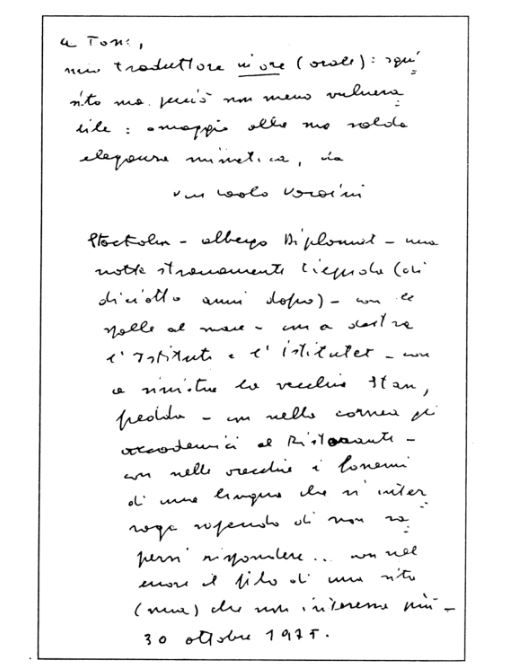 a Toni,
mio traduttore in ore (orale): squi
sito ma perciò non meno vulnera
bile: omaggio alla sua salda
eleganza mimetica, da
Stockholm - albergo Diplomat - una
notte stranamente tiepida (di
diciotto anni dopo) - con le
spalle al mare - con a destra
l'Istituto e l'istitutet - con
a sinistra la vecchia Stan,
fredda - con nella cornea gli
accademici al Ristorante -
con nelle orecchie i fonemi
di una lingua che si inter
roga sapendo di non sa
persi rispondere... con nel
cuore il filo di una vita
(mia) che non interessa più -
30 ottobre 1975.